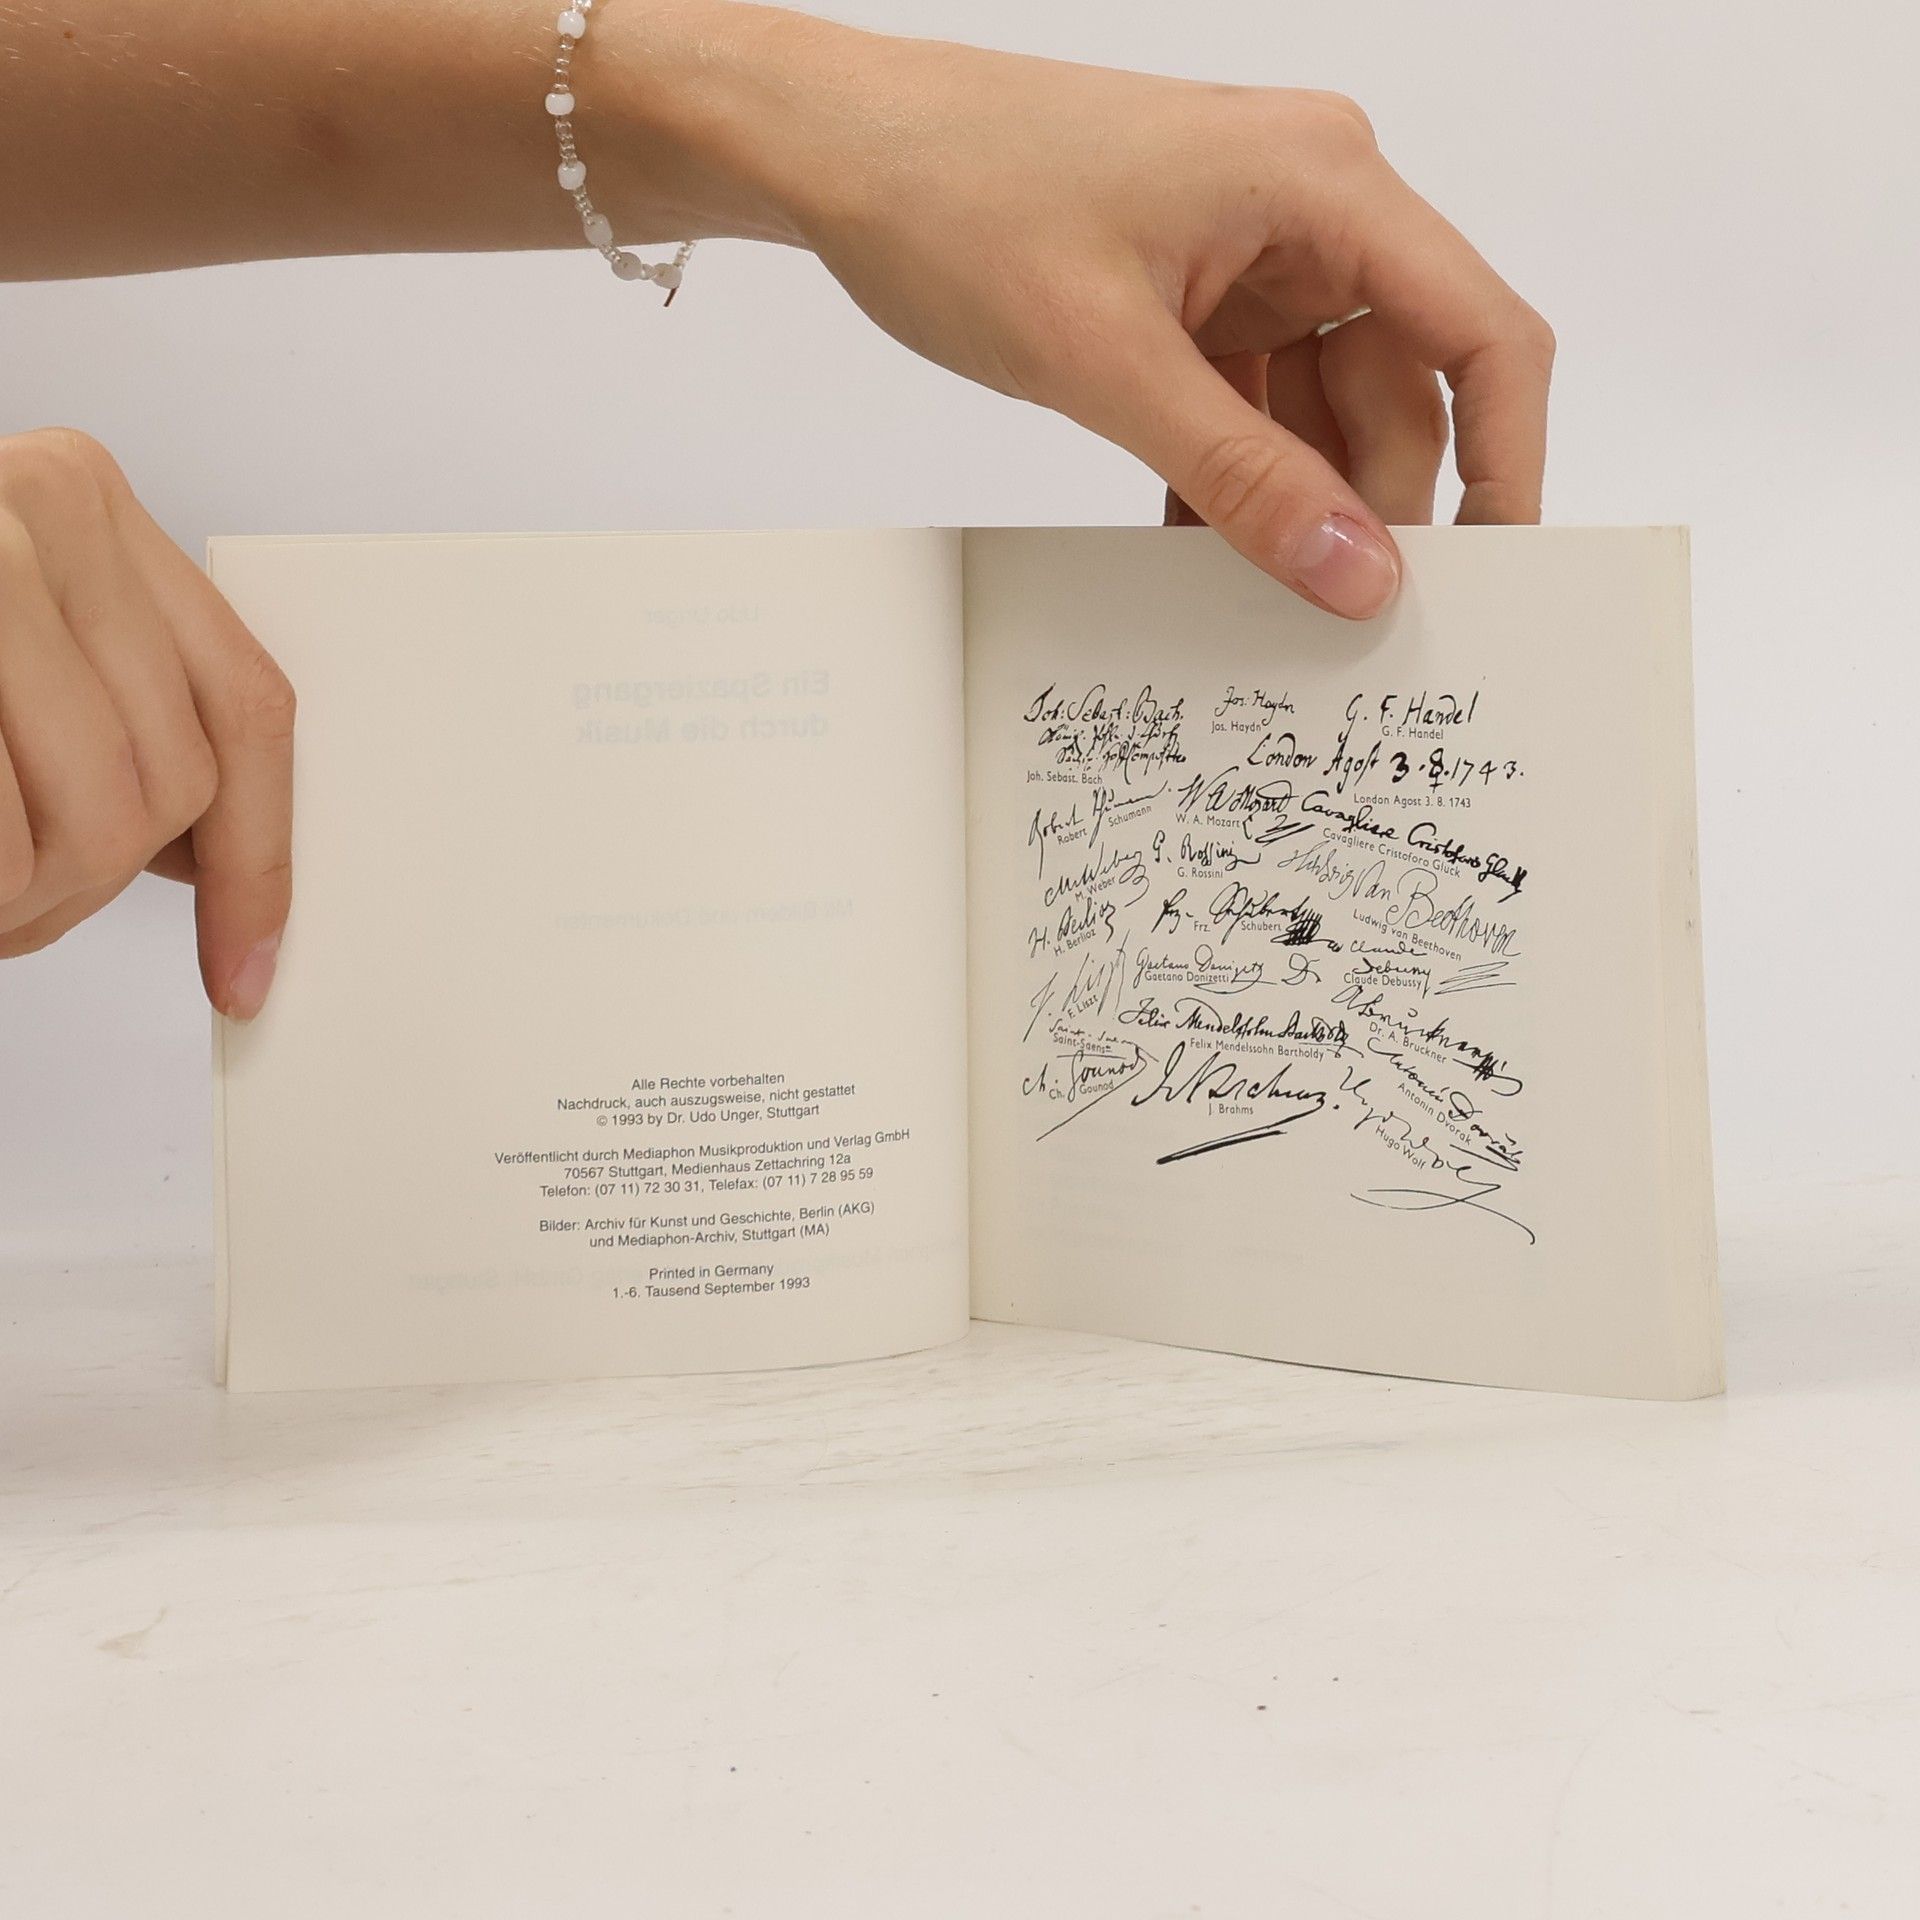 Udo Unger
Ein Spaziergang
durch die Musik
Mit Bildern und Dokumenten
Alle Rechte vorbehalten
Nachdruck, auch auszugsweise, nicht gestattet
© 1993 by Dr. Udo Unger, Stuttgart
Veröffentlicht durch Mediaphon Musikproduktion und Verlag GmbH
70567 Stuttgart, Medienhaus Zettachring 12a
Telefon: (07 11) 72 30 31, Telefax: (07 11) 7 28 95 59
Bilder: Archiv für Kunst und Geschichte, Berlin (AKG)
und Mediaphon-Archiv, Stuttgart (MA)
Printed in Germany
1.-6. Tausend September 1993
Joh: Sebast: Bach.
Joh. Sebast. Bach
Jos: Haydn
Jos. Haydn
G. F. Handel
G. F. Handel
London Agost 3. 8. 1743.
London Agost 3. 8. 1743
Robert Schumann
Robert Schumann
W A Mozart
W. A. Mozart
Cavagliere Cristoforo Gluck
Cavagliere Cristoforo Gluck
M Weber
M. Weber
G. Rossini
G. Rossini
Ludwig van Beethoven
Ludwig van Beethoven
H. Berlioz
H. Berlioz
Frz. Schubert
Frz. Schubert
Claude
Debussy
Claude Debussy
F. Liszt
F. Liszt
Gaetano Donizetti
Gaetano Donizetti
Dr. A Bruckner
Dr. A. Bruckner
Saint-Saens
Felix Mendelssohn Bartholdy
Felix Mendelssohn Bartholdy
Antonín Dvořák
Antonin Dvorak
Ch. Gounod
Ch. Gounod
J Brahms.
J. Brahms
Hugo Wolf
Hugo Wolf